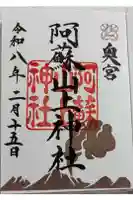 奥宮
阿蘇山上神社
阿蘇
神社
令和八年二月十五日